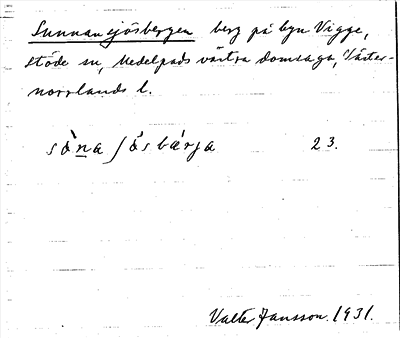 Sunnansjösbergen berg på byn Vigge,
Stöde sn, Medelpads västra domsaga, Väster-
norrlands l.
sὰna ʃǻsbærja 23.
Valter Jansson 1931.